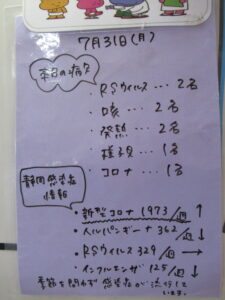 7月31日(月)
本日の病欠
RSウイルス … 2名
咳 … 2名
発熱 … 2名
様子見 … 1名
コロナ … 1名
静岡感染症
情報
・新型コロナ 1973/週 ↑
・ヘルパンギーナ 362/週 ↓
・RSウイルス 329/週 →
・インフルエンザ 125/週 ↓
季節を問わず感染症が流行して
います。